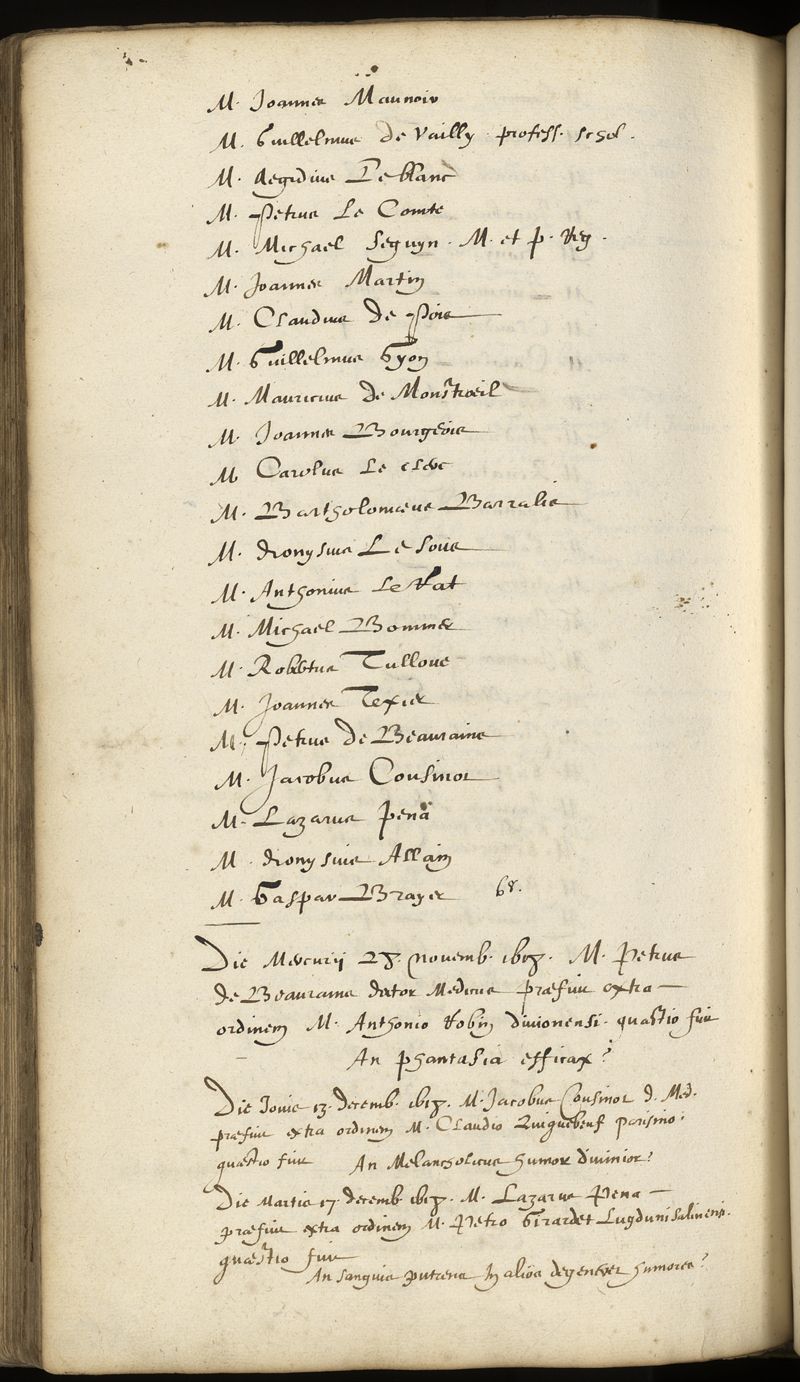 M. Joannes Maunoir
M. Guillelmus de Vailly profess. schol.
M. Aegidius Leblanc
M. Petrus Le Comte
M. Michael Seguyn. M. et p. Reg.
M. Joannes Martin
M. Claudius de Pois
M. Guillelmus Gyon
M. Mauricius de Monstroeil
M. Joannes Bourgeois
M. Carolus Le clerc
M. Bartholomaeus Barralis
M. dionysius Le Soue
M. Anthonius Le Rat
M. Michael Bommer
M. Robertus Tulloue
M. Joannes Texier
M. Petrus de Beaurains
M. Jacobus Cousinot
M. Lazarus Pena
M. dionysius Allain
M. Gaspar Brayer 68.
Die Mercurij 28. novemb. M. Petrus
de Beaurains doctor Medicus praefuit extra
ordinem M. Anthonio Robin divionensi. quaestio fuit
An phantasia efficax?
Die Jovis 13. decemb. M. Jacobus Cousinot d. Med.
praefuit extra ordinem M. Claudio Quiquebeuf parisino.
quaestio fuit An Melancholicus humor divinior?
Die Martis 17. decemb. M. Lazarus Pena
praefuit extra ordinem M. Petro Girardet Lugdunisalinensi.
quaestio fuit
An sanguis putrens in alios degeneret humores?